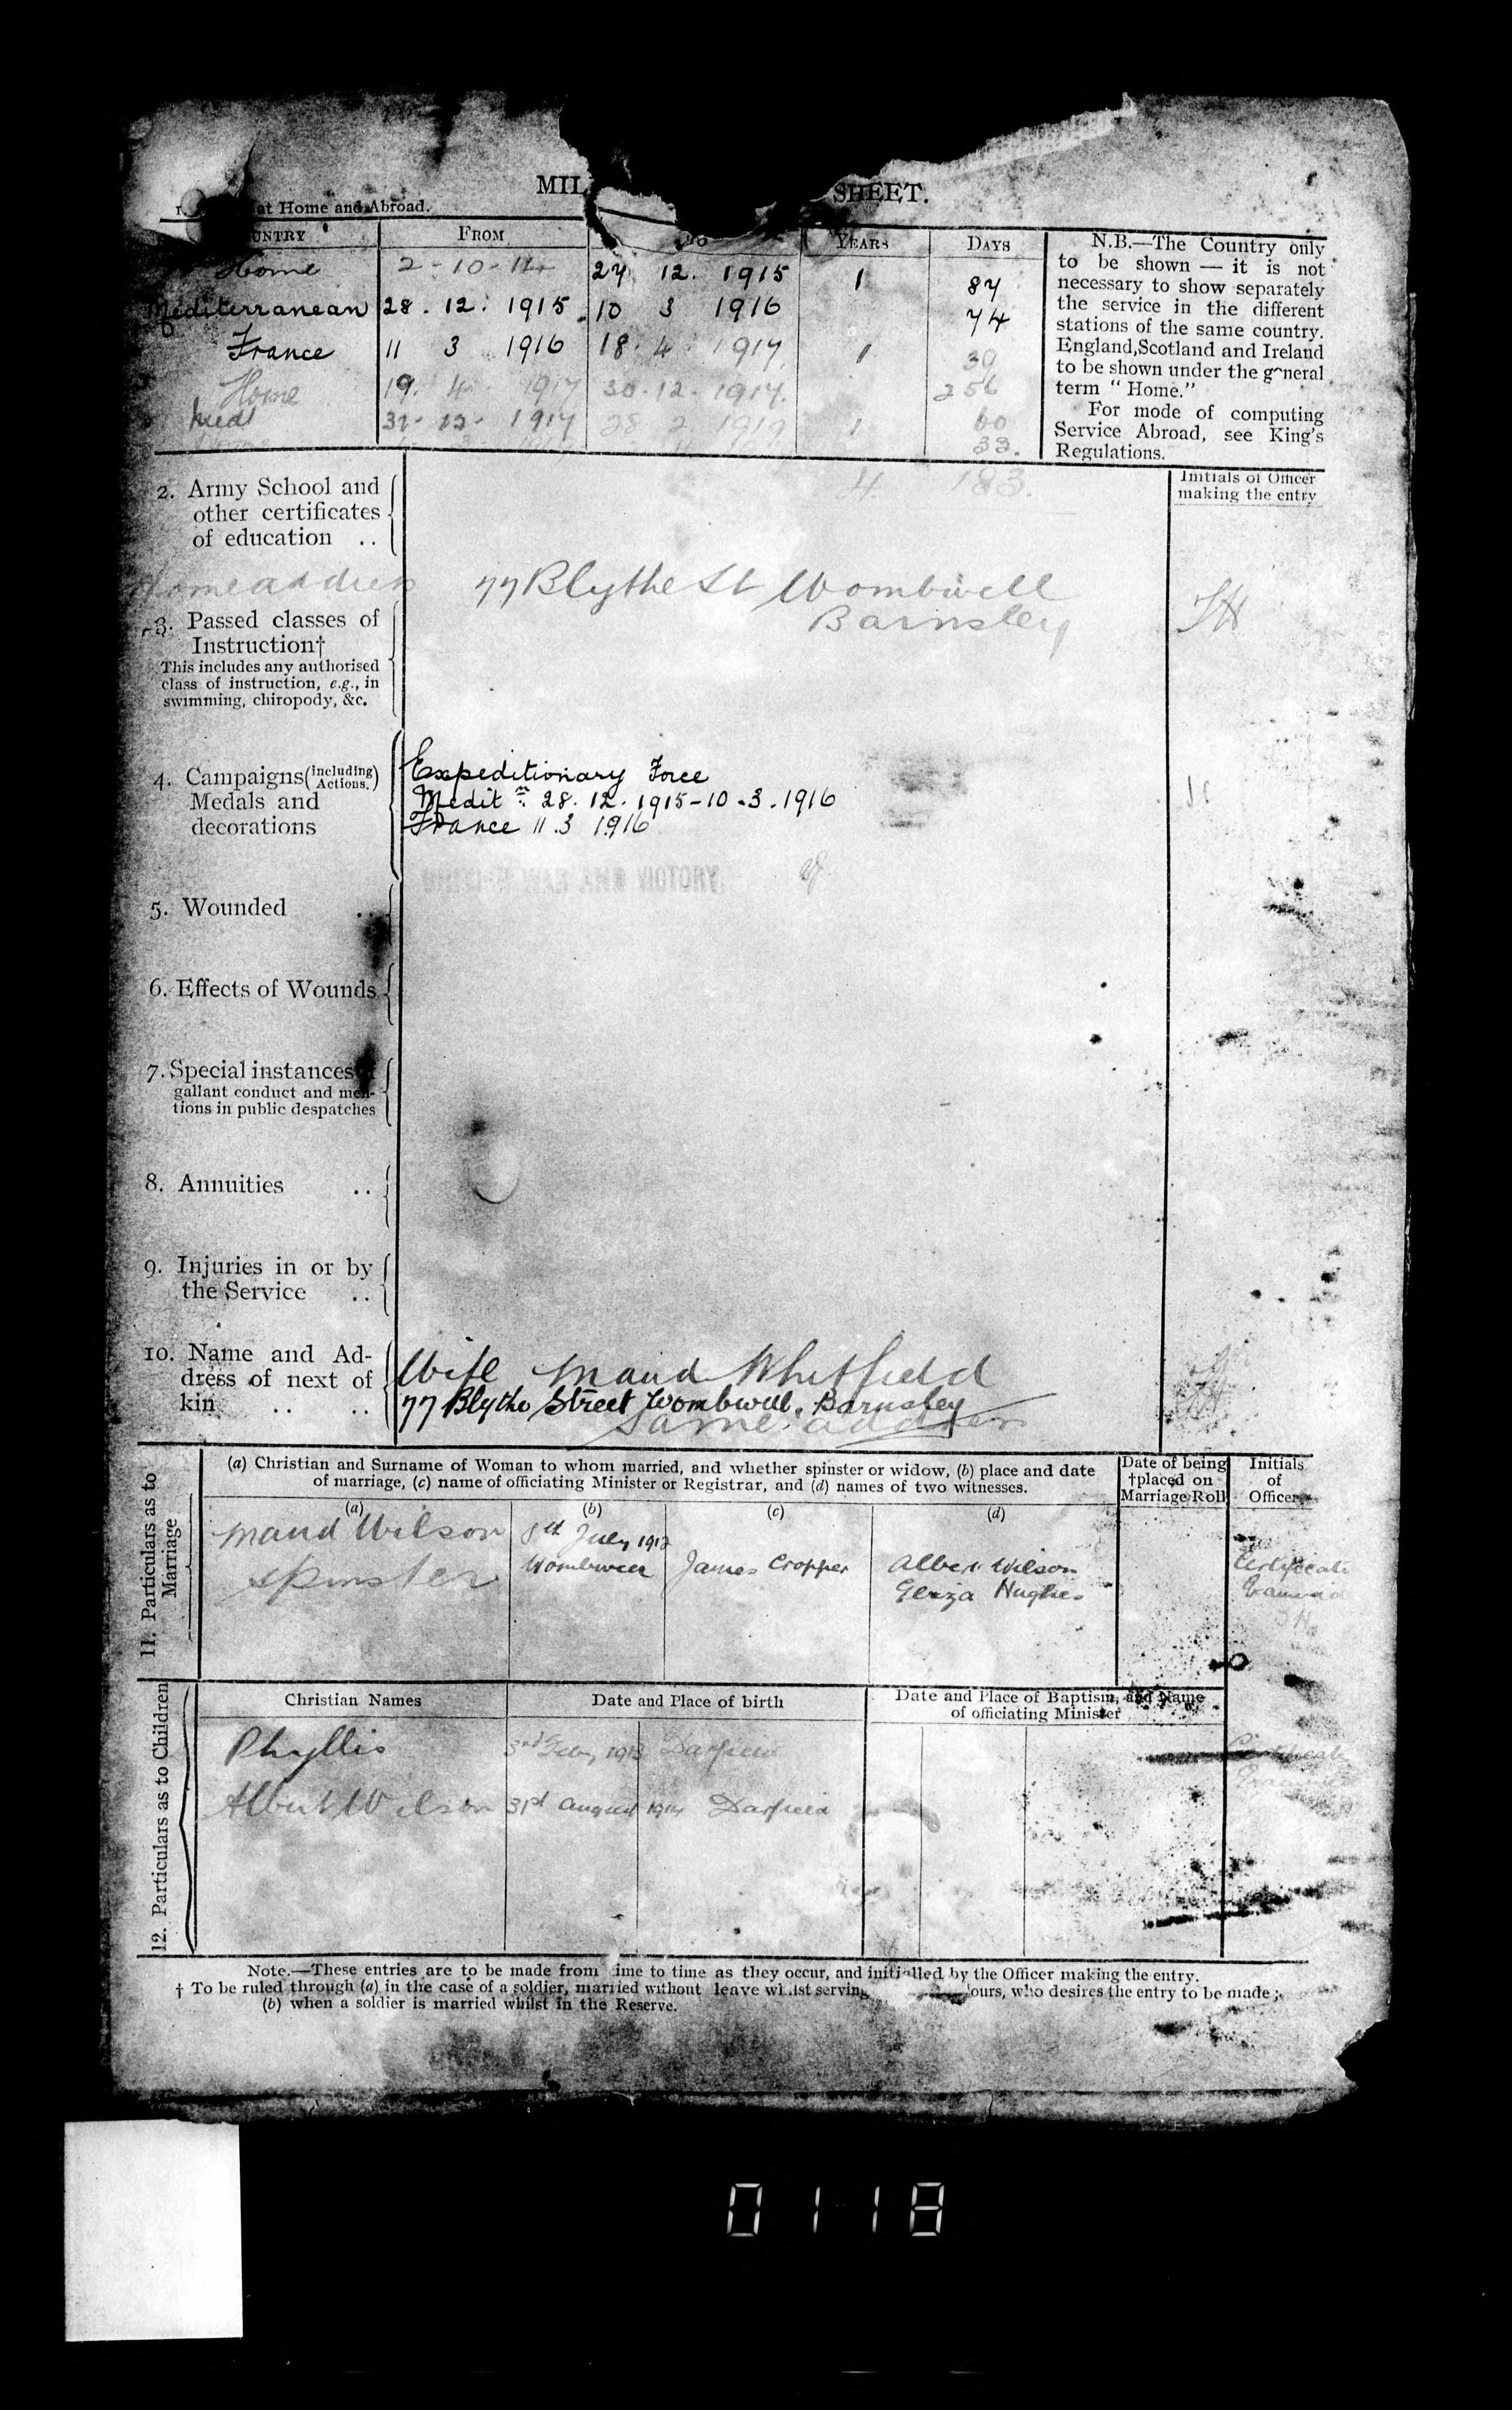 MIL SHEET.
at Home and Abroad.
UNTRY FROM TO YEARS DAYS
Home 2-10-14 27 12. 1915 1 87
Mediterranean 28. 12. 1915 10 3 1916 74
France 11 3 1916 18. 4 1917 1 39
Home 19. 4 1917 30-12-1917. 256
Med 31-12-1917 28 2 1919 1 60
33.
4 183.
N.B.—The Country only
to be shown — it is not
necessary to show separately
the service in the different
stations of the same country.
England, Scotland and Ireland
to be shown under the g^neral
term "Home."
For mode of computing
Service Abroad, see King's
Regulations.
Initials of Officer
making the entry
2. Army School and
other certificates
of education ..
Home address 77 Blythe St Wombwell
Barnsley
3. Passed classes of
Instruction†
This includes any authorised
class of instruction, e.g., in
swimming, chiropody, &c.
4. Campaigns (including Actions.)
Medals and
decorations
Expeditionary Force
Medit n. 28. 12. 1915-10.3.1916
France 11.3 1916
BRITISH WAR AND VICTORY
5. Wounded ..
6. Effects of Wounds
7. Special instances
gallant conduct and men-
tions in public despatches
8. Annuities ..
9. Injuries in or by
the Service ..
10. Name and Ad-
dress of next of
kin .. ..
Wife Maud Whitfield
77 Blythe Street Wombwell. Barnsley
Same address
11. Particulars as to Marriage
(a) Christian and Surname of Woman to whom married, and whether spinster or widow, (b) place and date
of marriage, (c) name of officiating Minister or Registrar, and (d) names of two witnesses.
Date of being
†placed on
Marriage Roll
Initials
of
Officer
(a) (b) (c) (d)
Maud Wilson 8th July 1912
Spinster Wombwell James Cropper Albert Wilson
Eliza Hughes
Certificate
Examined
12. Particulars as to Children
Christian Names Date and Place of birth Date and Place of Baptism, and Name
of officiating Minister
Phyllis 3rd 1913 Darfield
Albert Wilson 31st August 1914 Darfield
Note.—These entries are to be made from time to time as they occur, and initialled by the Officer making the entry.
† To be ruled through (a) in the case of a soldier, married without leave whilst serving ours, who desires the entry to be made;
(b) when a soldier is married whilst in the Reserve.
0118